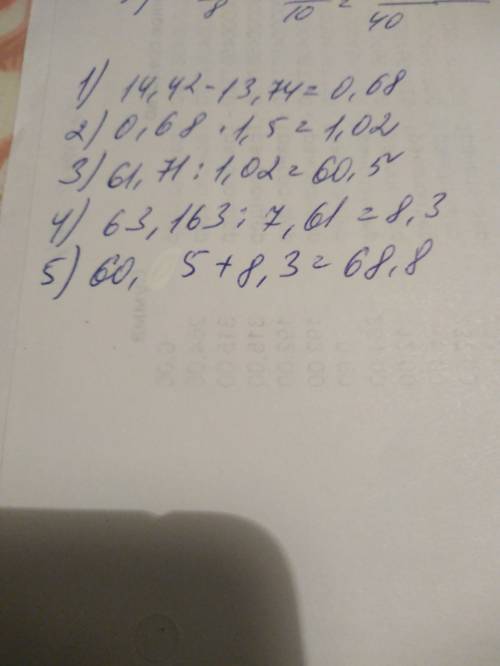 8 10 = 40
1) 14,42 - 13,74 = 0,68
2) 0,68 · 1,5 = 1,02
3) 61,71 : 1,02 = 60,5
4) 63,163 : 7,61 = 8,3
5) 60, 5 + 8,3 = 68,8